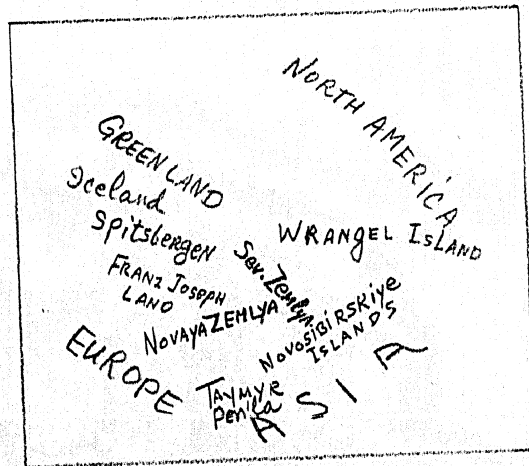 NORTH AMERICA
GREENLAND
Iceland
Spitsbergen
WRANGEL ISLAND
Sev. Zemlya
FRANZ JOSEPH
LAND
NOVAYA ZEMLYA
NOVOSIBIRSKIYE
ISLANDS
EUROPE
TAYMYR
Pen'la
ASIA